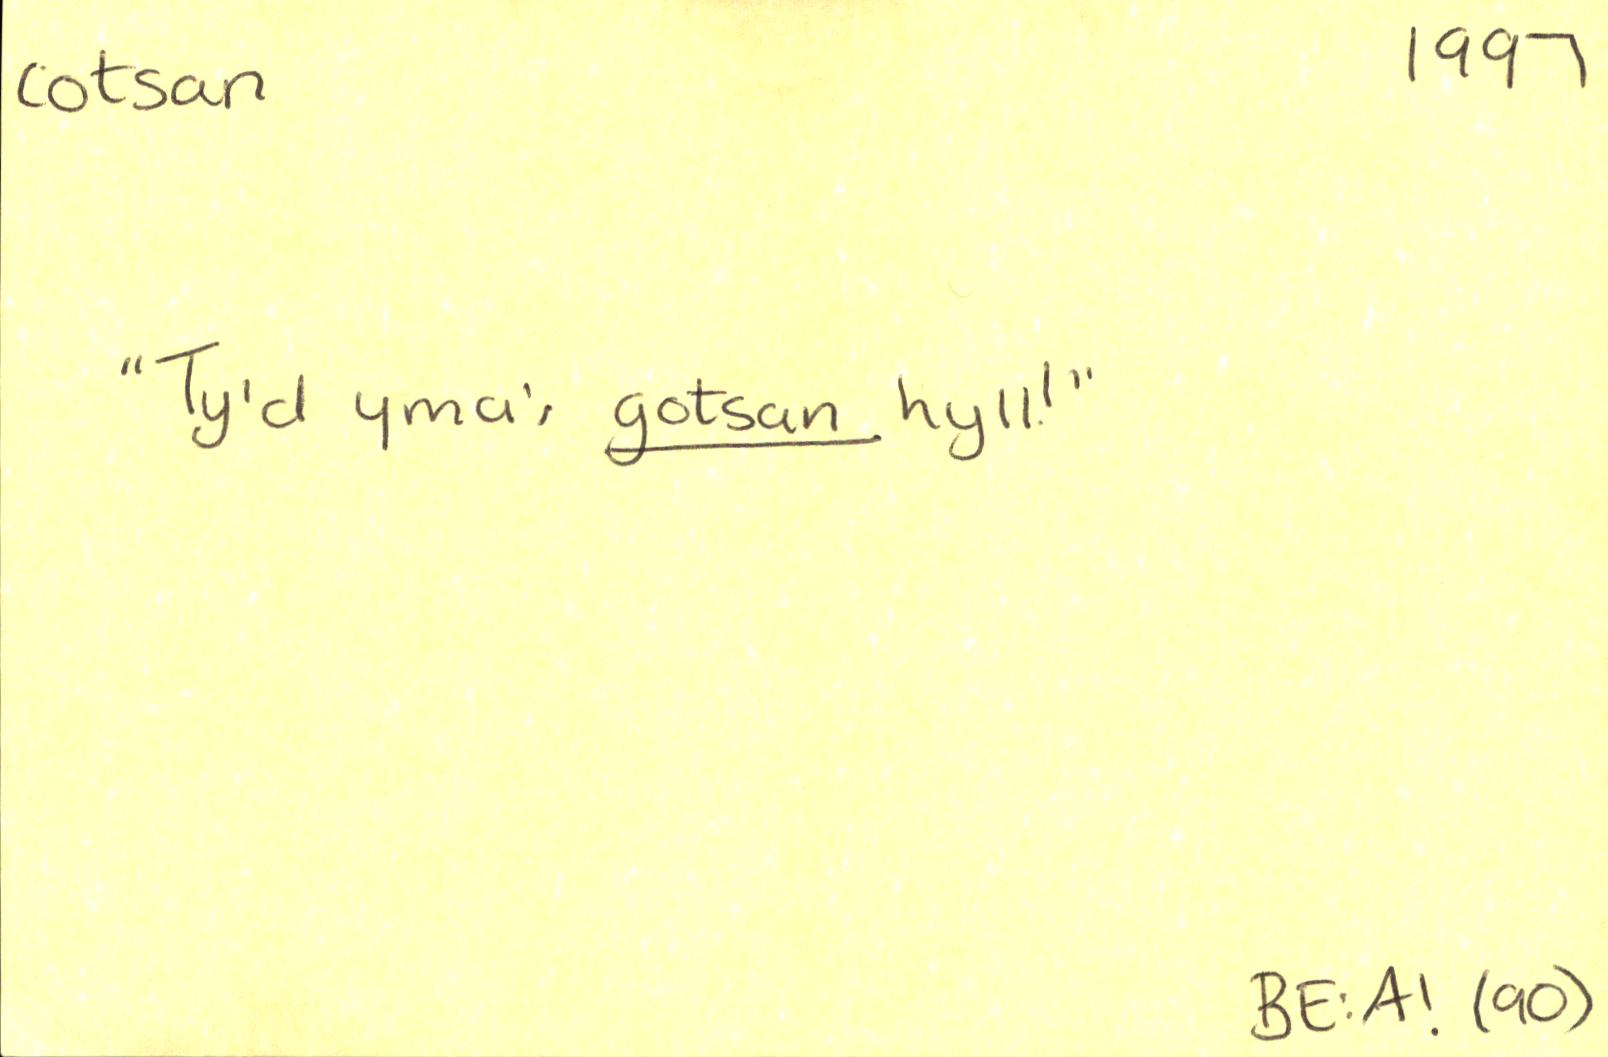 cotsan
1997
"Ty'd yma', gotsan hyll!"
BE:A! (90)